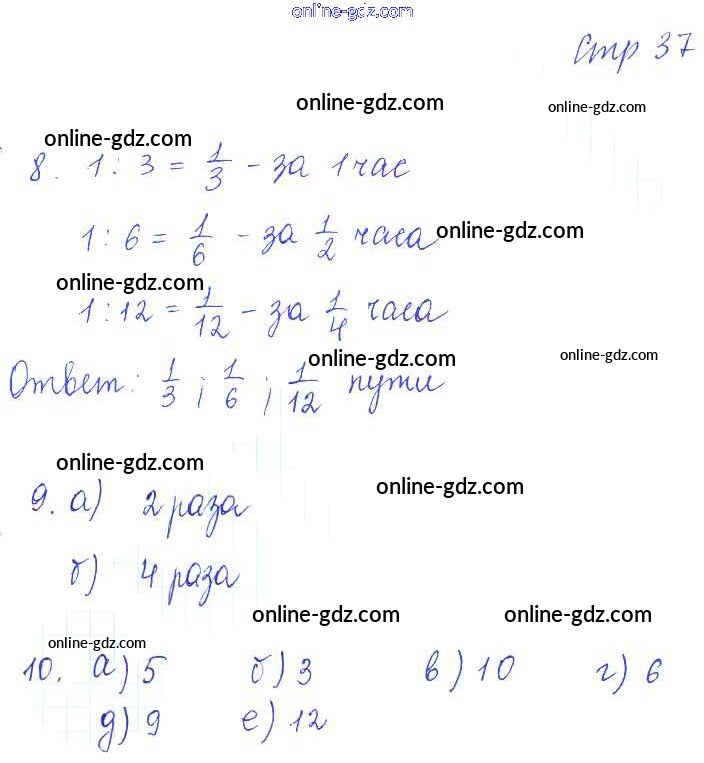 online-gdz.com
стр 37
online-gdz.com online-gdz.com
online-gdz.com
8. 1 : 3 = 1/3 - за 1 час
1 : 6 = 1/6 - за 1/2 часа online-gdz.com
online-gdz.com
1 : 12 = 1/12 - за 1/4 часа
online-gdz.com online-gdz.com
Ответ: 1/3 ; 1/6 ; 1/12 пути
online-gdz.com online-gdz.com
9. а) 2 раза
б) 4 раза
online-gdz.com online-gdz.com
online-gdz.com
10. а) 5 б) 3 в) 10 г) 6
д) 9 е) 12